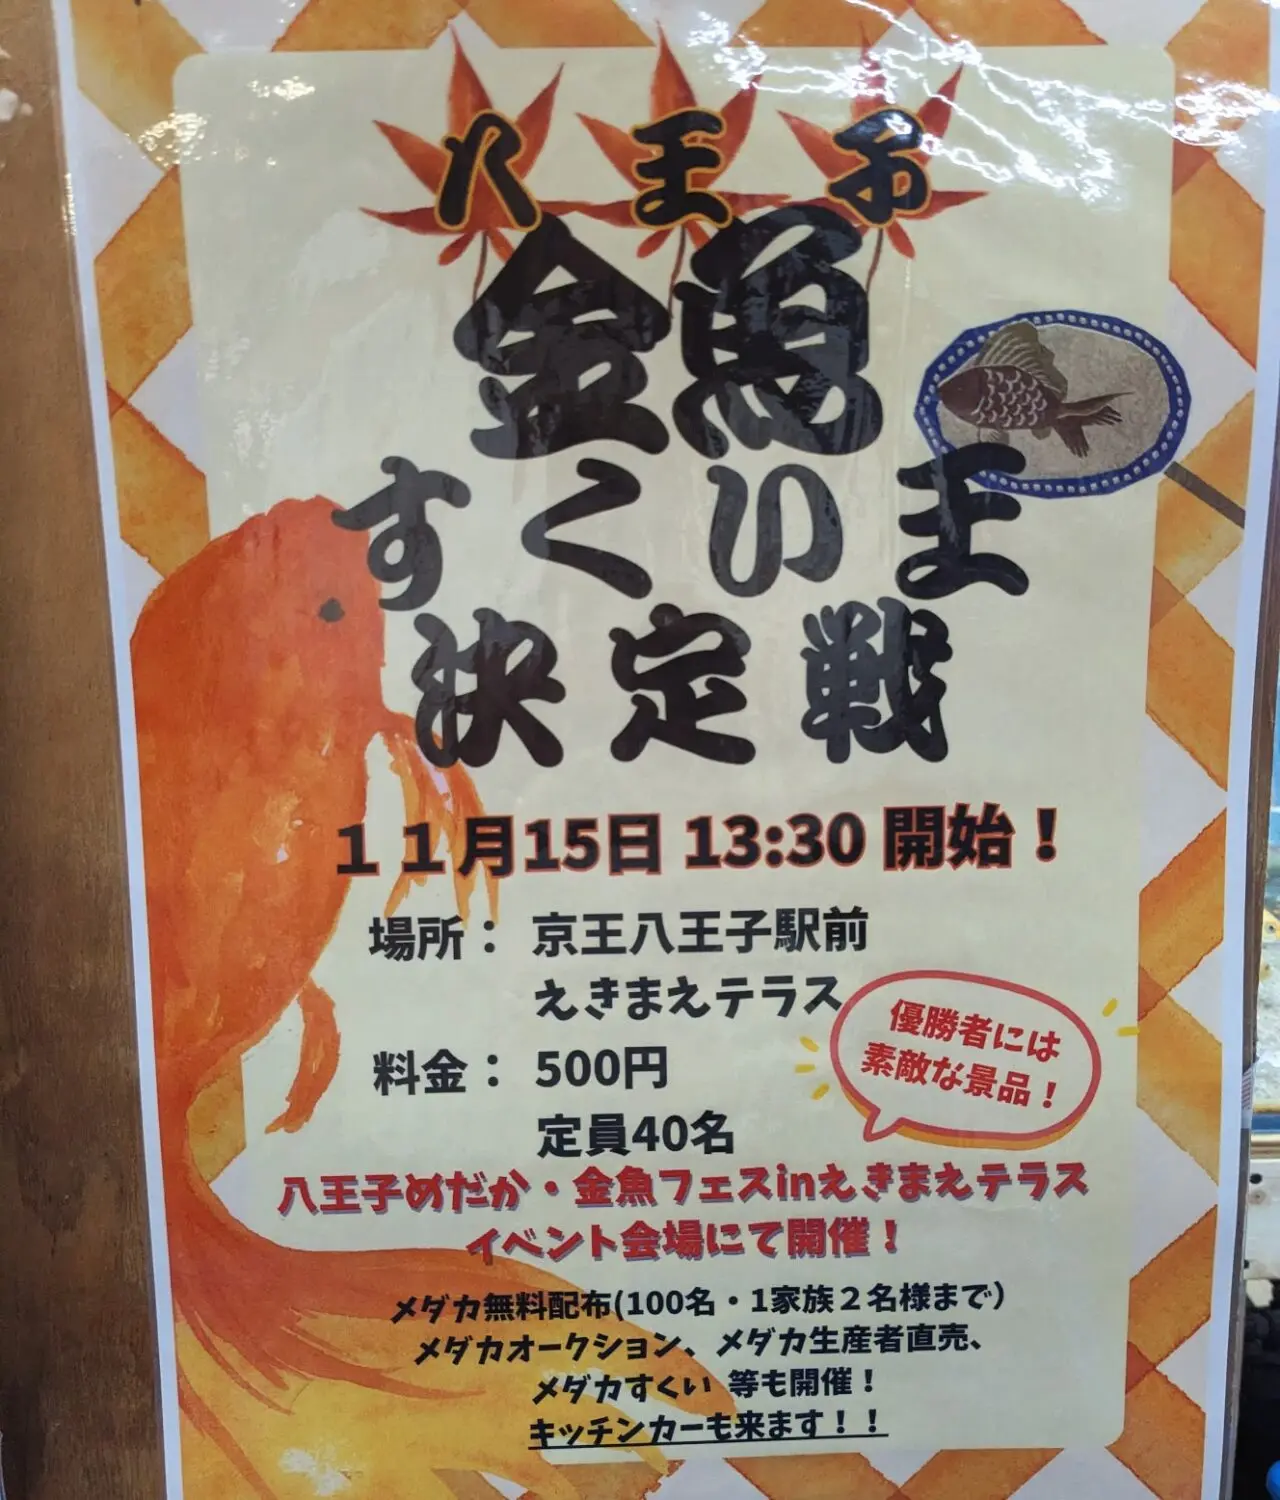 八王子
金魚
すくい王
決定戦
11月15日 13:30 開始！
場所： 京王八王子駅前
えきまえテラス
料金： 500円
定員40名
優勝者には
素敵な景品！
八王子めだか・金魚フェスinえきまえテラス
イベント会場にて開催！
メダカ無料配布(100名・1家族２名様まで)
メダカオークション、メダカ生産者直売、
メダカすくい 等も開催！
キッチンカーも来ます！！